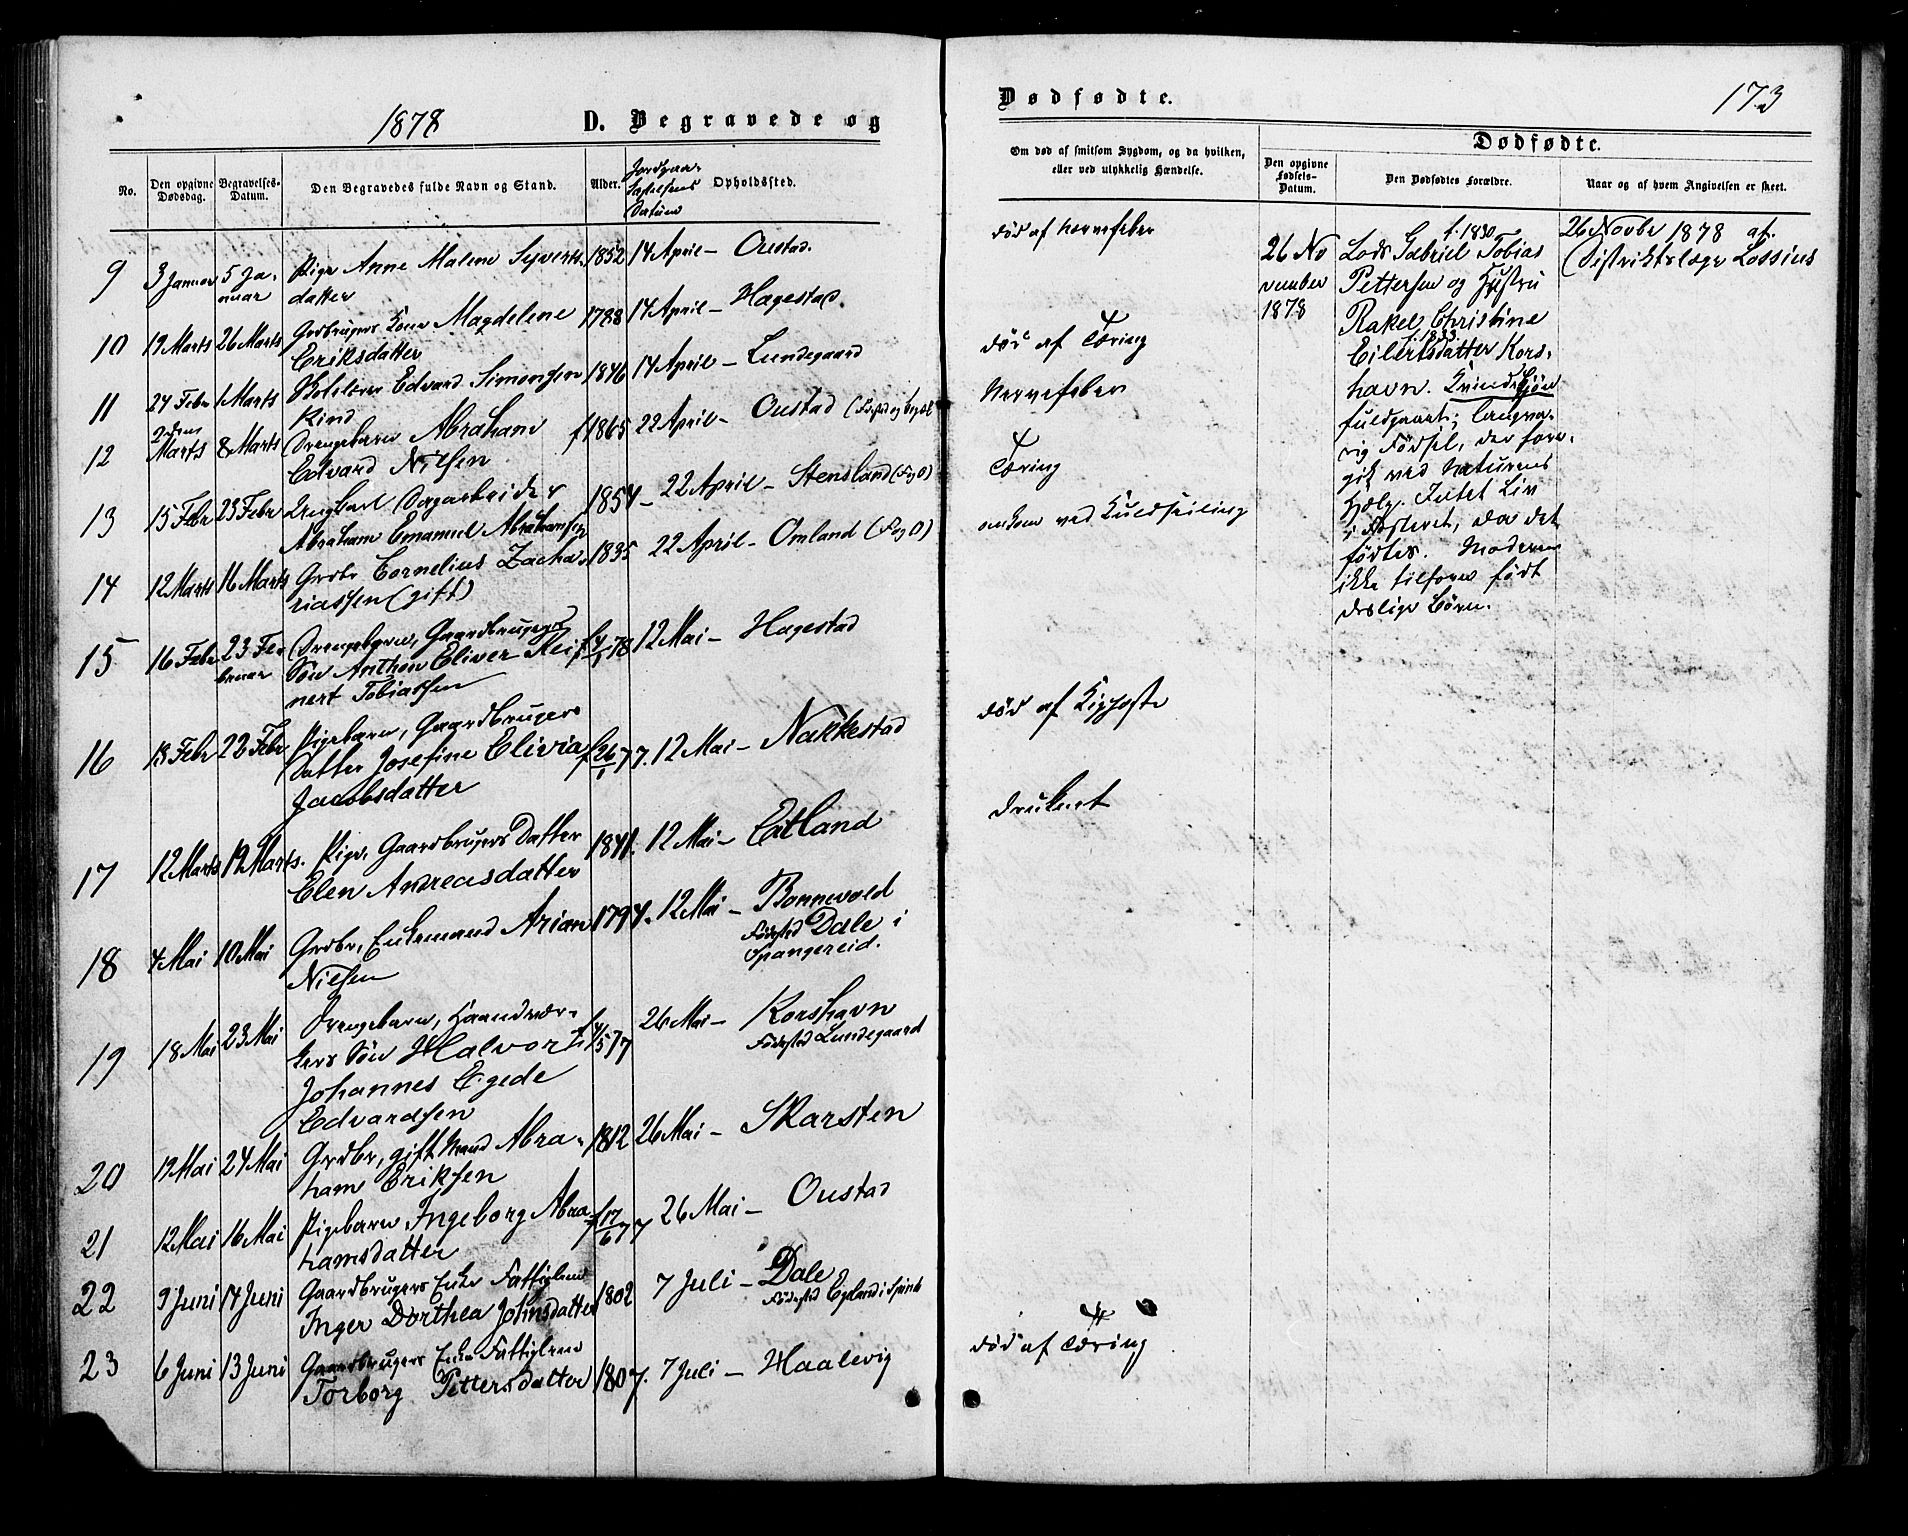 1878 D. Begravede og
No. Den opgivne Dødsdag. Begravelses-Datum. Den Begravedes fulde Navn og Stand. Alder. Jordpaakastelsens Datum Opholdssted.
9 3 Januar 5 Ja- Pige Anne Malene Syverts 1852 14 April – Oustad.
nuar datter
10 19 Marts 26 Marts Grdbrugers Kone Magdelene 1788 14 April – Hagestad.
Eriksdatter
11 24 Febr 1 Marts Edvard Simonsen 1846 14 April – Lundegaard
12 2den Marts 8 Marts Drengebarn Abraham f 1865 22 April – Oustad
Edvard Nilsen
13 15 Febr 23 Febr Ungkarl Dagarbeider 1854 – 22 April – Stensland (F og O)
Abraham Emanuel Abrahamsen
14 12 Marts 16 Marts Grdbr Cornelius Zacha- 1835 22 April – Omland (F og O)
riassen (gift)
15 16 Febr 23 Fe- Drengebarn, Gaardbrugers f 4/1 78 12 Mai – Hagestad
bruar Søn Anthon Eliver Rei-
nert Tobiassen
16 13 Febr 22 Febr Pigebarn, Gaardbrugers
Datter Josefine Elivia f 26/1 77. 12 Mai – Nakkestad
Jacobsdatter
17 12 Marts 19 Marts. Pige, Gaardbrugers Datter 1841. 12 Mai – Eatland
Elen Andreasdatter
18 4 Mai 10 Mai Grdbr, Enkemand Arian 1794. 12 Mai – Bonnevold
Nilsen Fødested Dale i
Spangereid.
19 18 Mai 23 Mai Drengebarn, Haandvær- f 4/5 77 26 Mai – Korshavn
kers Søn Halvor Fødested Lundegaard
Johannes Egede
Edvardsen
20 19 Mai 24 Mai Grdbr, gift Mand Abra- 1812 26 Mai – Skarsten
ham Eriksen
21 12 Mai 16 Mai Pigebarn Ingeborg Abra- f 17/6 77 26 Mai – Oustad
hamsdatter
22 9 Juni 14 Juni Gaardbrugers Enke Fattiglem 1802 7 Juli – Dale
Inger Dorthea Johnsdatter Fødested
23 6 Juni 13 Juni Gaardbrugers Enke Fattiglem 1807. 7 Juli – Haalevig
Torborg Pettersdatter
Dødfødte. 173
Om død af smitsom Sygdom, og da hvilken,
eller ved ulykkelig Hændelse.
Dødfødte.
Den opgivne Fødsels-Datum. Den Dødfødtes Forældre. Naar og af hvem Angivelsen er skeet.
død af Nervefeber
død af Tæring
Nervefeber
Tæring
omkom ved Kuldseiling
død af Kighoste
druknet
død af Tæring
26 No
vember
1878
f. 1830
Lods Gabriel Tobias
Pettersen og Hustru
Rakel Christine
f. 1833
Eilertsdatter Kors-
havn. Kvindekjøn
fuldbaaret; langva-
rig Fødsel, der fore-
gik ved Naturens
Hjælp. Intet Liv
i Fosteret, da det
fødtes. Moderen
ikke tilforn født
deslige Børn.
26 Novbr 1878 af
Distriktslæge Lossius